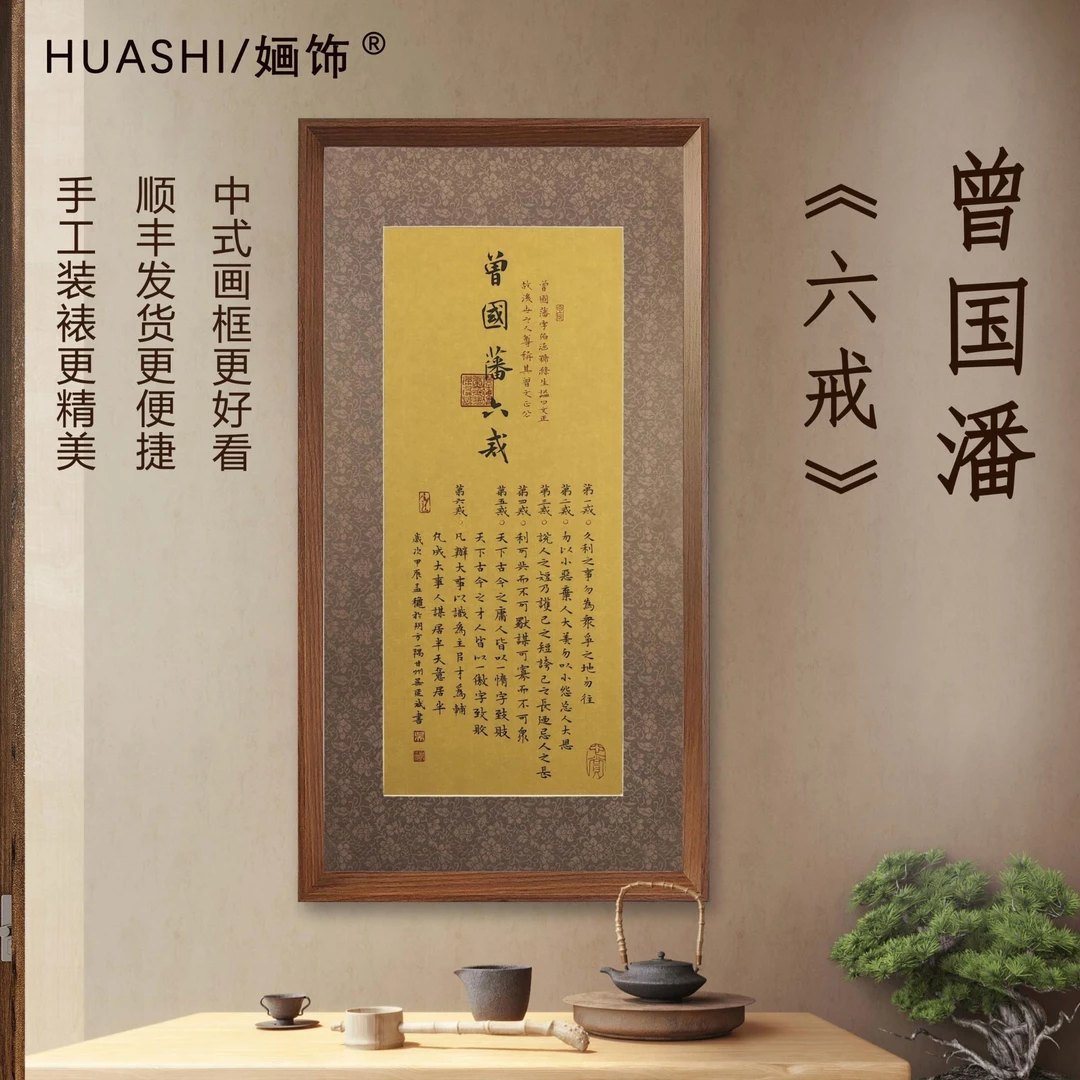 HUASHI/婳饰®
曾国潘
《六戒》
中式画框更好看
顺丰发货更便捷
手工装裱更精美
曾國藩六戒
第一戒。久利之事勿為眾爭之地勿往
第二戒。勿以小惡棄人大美勿以小怨忘人大恩
第三戒。説人之短乃護己之短誇己之長便忌人之長
第四戒。利可共而不可獨謀可寡而不可眾
第五戒。天下古今之庸人皆以一惰字致敗
天下古今之才人皆以一傲字致敗
第六戒。凡辦大事以識為主臣才為輔
凡成大事人謀居半天意居半